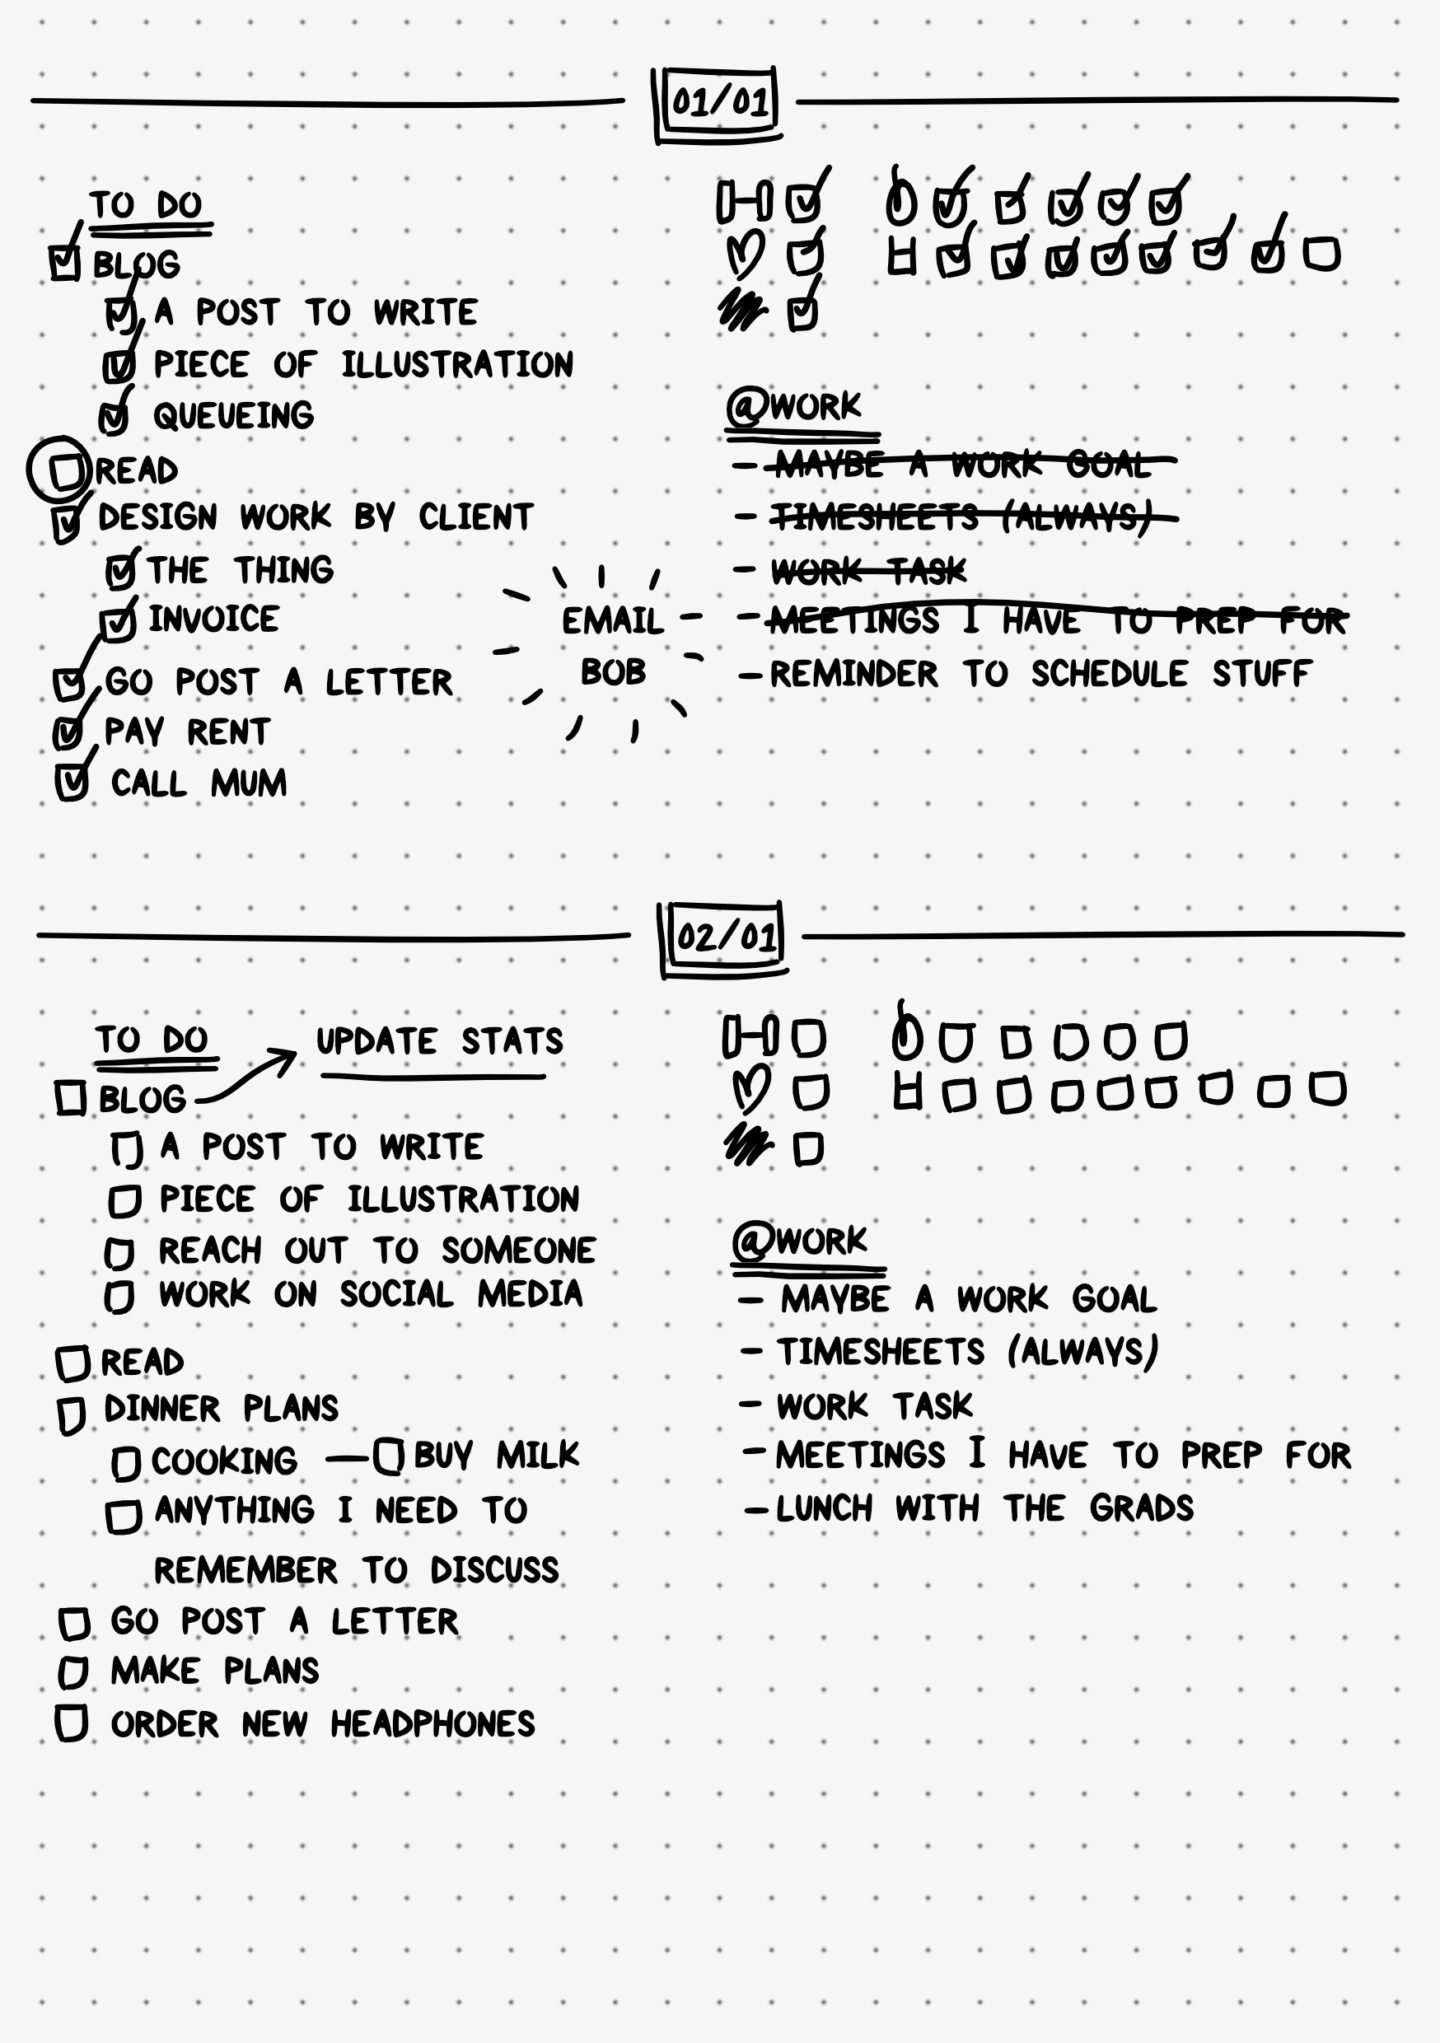 01/01
TO DO
BLOG
A POST TO WRITE
PIECE OF ILLUSTRATION
QUEUEING
READ
DESIGN WORK BY CLIENT
THE THING
INVOICE
GO POST A LETTER
PAY RENT
CALL MUM
EMAIL
BOB
@WORK
- MAYBE A WORK GOAL
- TIMESHEETS (ALWAYS)
- WORK TASK
- MEETINGS I HAVE TO PREP FOR
- REMINDER TO SCHEDULE STUFF
02/01
TO DO
UPDATE STATS
BLOG
A POST TO WRITE
PIECE OF ILLUSTRATION
REACH OUT TO SOMEONE
WORK ON SOCIAL MEDIA
READ
DINNER PLANS
COOKING — BUY MILK
ANYTHING I NEED TO
REMEMBER TO DISCUSS
GO POST A LETTER
MAKE PLANS
ORDER NEW HEADPHONES
@WORK
- MAYBE A WORK GOAL
- TIMESHEETS (ALWAYS)
- WORK TASK
- MEETINGS I HAVE TO PREP FOR
- LUNCH WITH THE GRADS